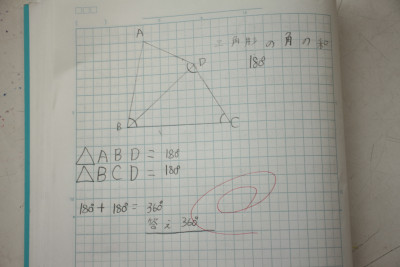 A
D
B
C
三角形の角の和
180°
△ABD = 180°
△BCD = 180°
180° + 180° = 360°
答え 360°